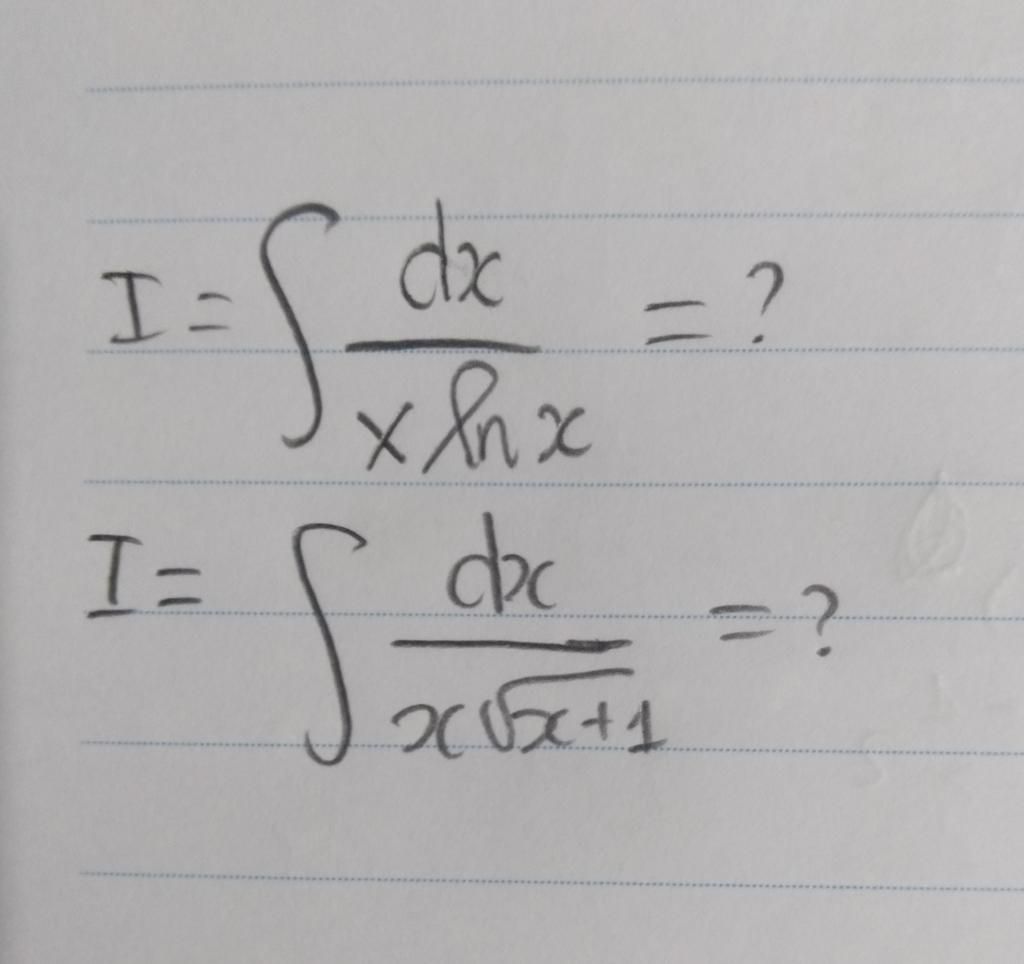 I = ∫ dx / (x ln x) = ?
I = ∫ dx / (x√(x+1)) = ?